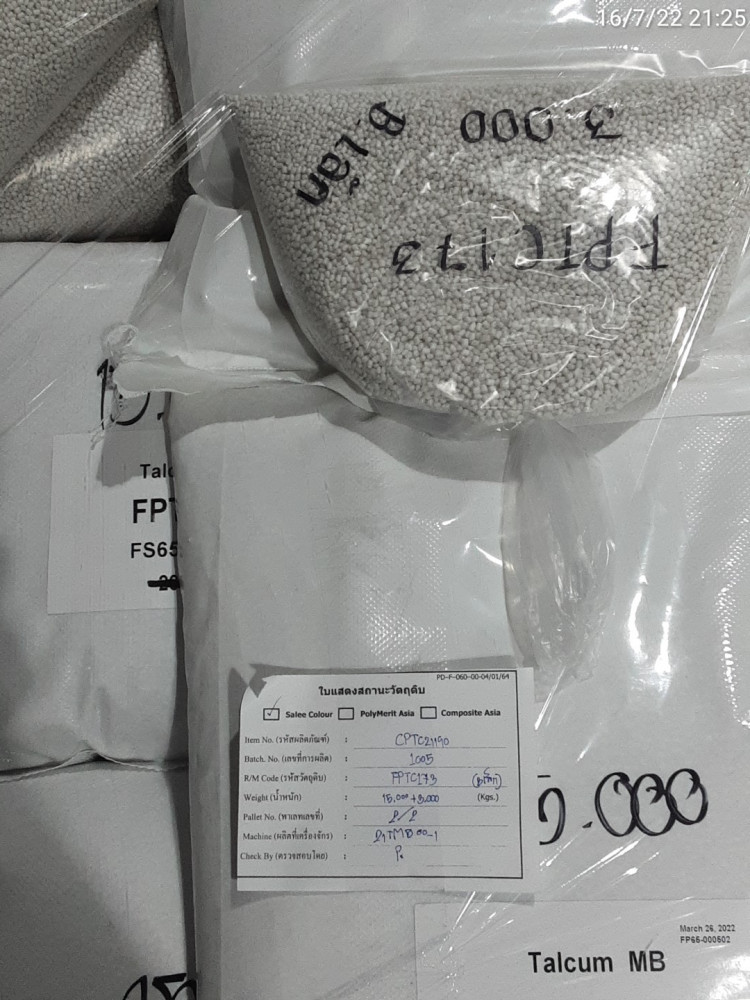 16/7/22 21:25
B.เล็ก
3.000
FPTC173
Talc
FPT
FS65
PD-F-060-00-04/01/64
ใบแสดงสถานะวัตถุดิบ
Salee Colour PolyMerit Asia Composite Asia
Item No. (รหัสผลิตภัณฑ์) : CPTC21190
Batch. No. (เลขที่การผลิต) : 1005
R/M Code (รหัสวัตถุดิบ) : FPTC173 (B.เล็ก)
Weight (น้ำหนัก) : 15.000+3.000 (Kgs.)
Pallet No. (พาเลทเลขที่) : 2/2
Machine (ผลิตที่เครื่องจักร) :
Check By (ตรวจสอบโดย) : P.
.000
March 26, 2022
FP65-000502
Talcum MB